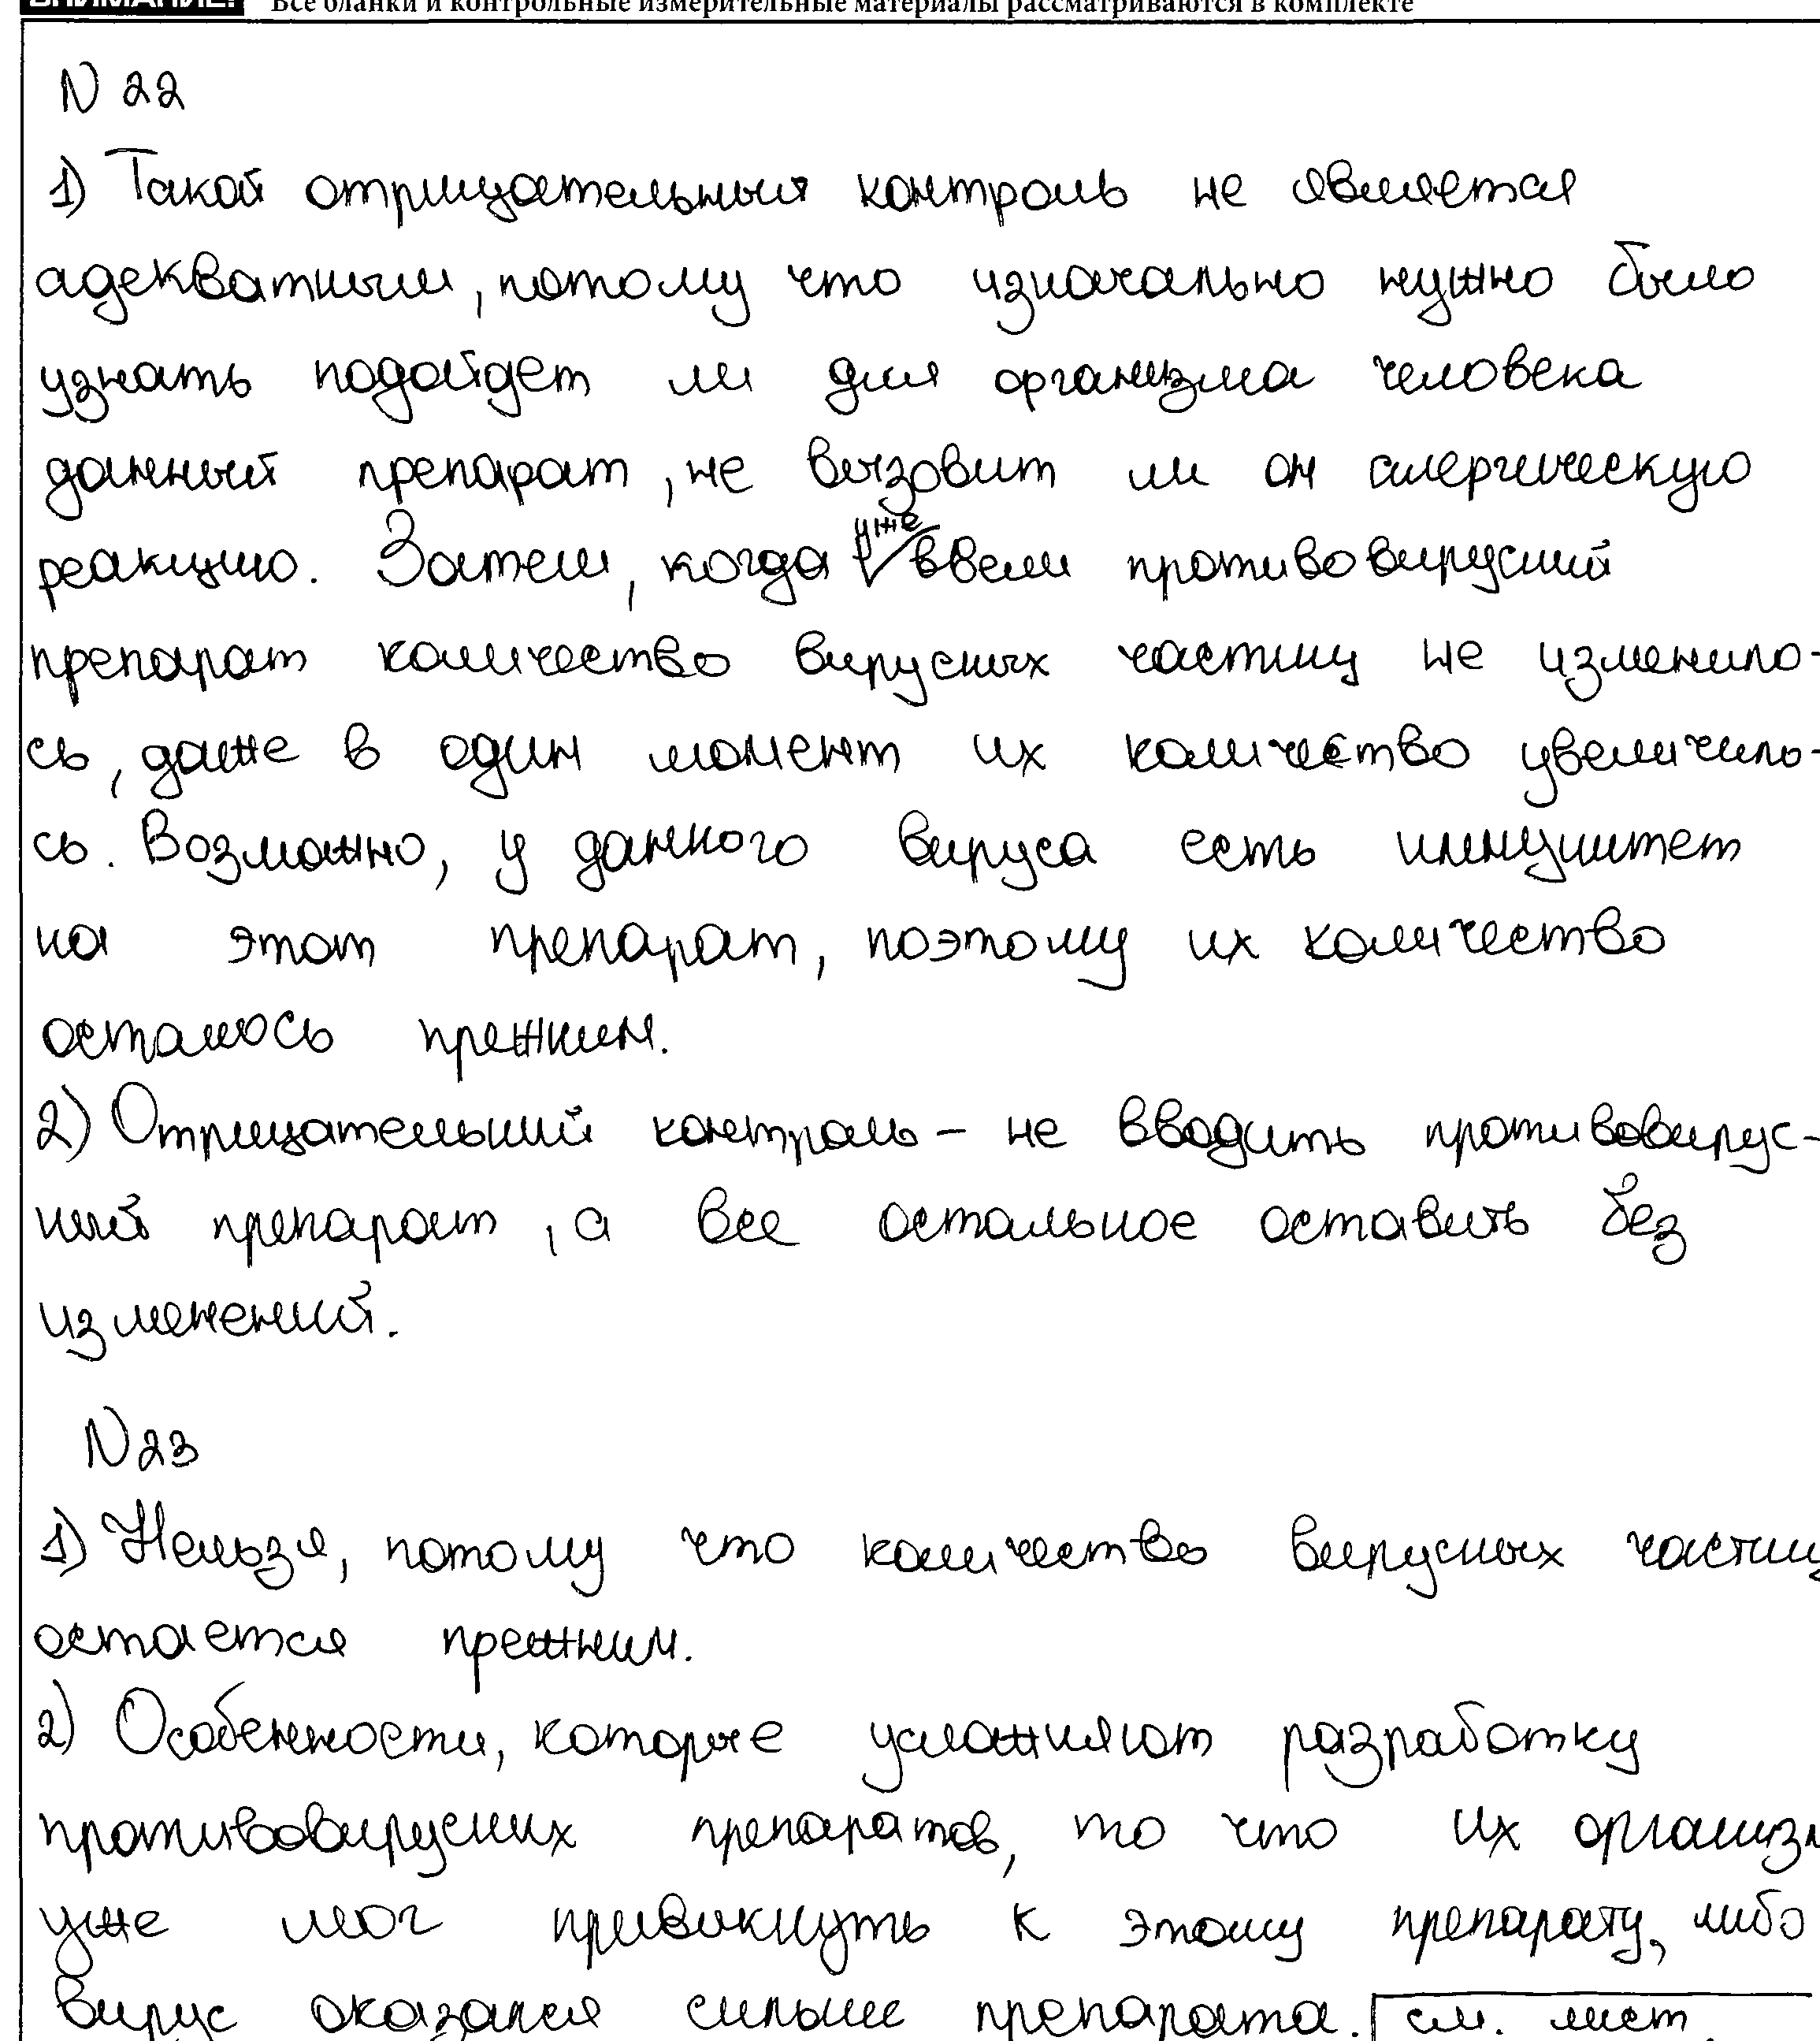 ВНИМАНИЕ! Все бланки и контрольные измерительные материалы рассматриваются в комплекте
N 22
1) Такой отрицательный контроль не является
адекватным, потому что изначально нужно было
узнать подойдет ли для организма человека
данный препарат, не вызовит ли он алергическую
реакцию. Затем, когда уже ввели противовирусний
препарат количество вирусных частиц не изменило-
сь, даже в один момент их количество увеличило-
сь. Возможно, у данного вируса есть иммунитет
на этот препарат, поэтому их количество
осталось прежним.
2) Отрицательний контроль - не вводить противовирус-
ний препарат, а все остальное оставить без
изменений.
N23
1) Нельзя, потому что количество вирусных частиц
остается прежним.
2) Особенности, которые усложняют разработку
противовирусних препаратов, то что их организм
уже мог привикнуть к этому препарату, либо
вирус оказался сильнее препарата. см. лист